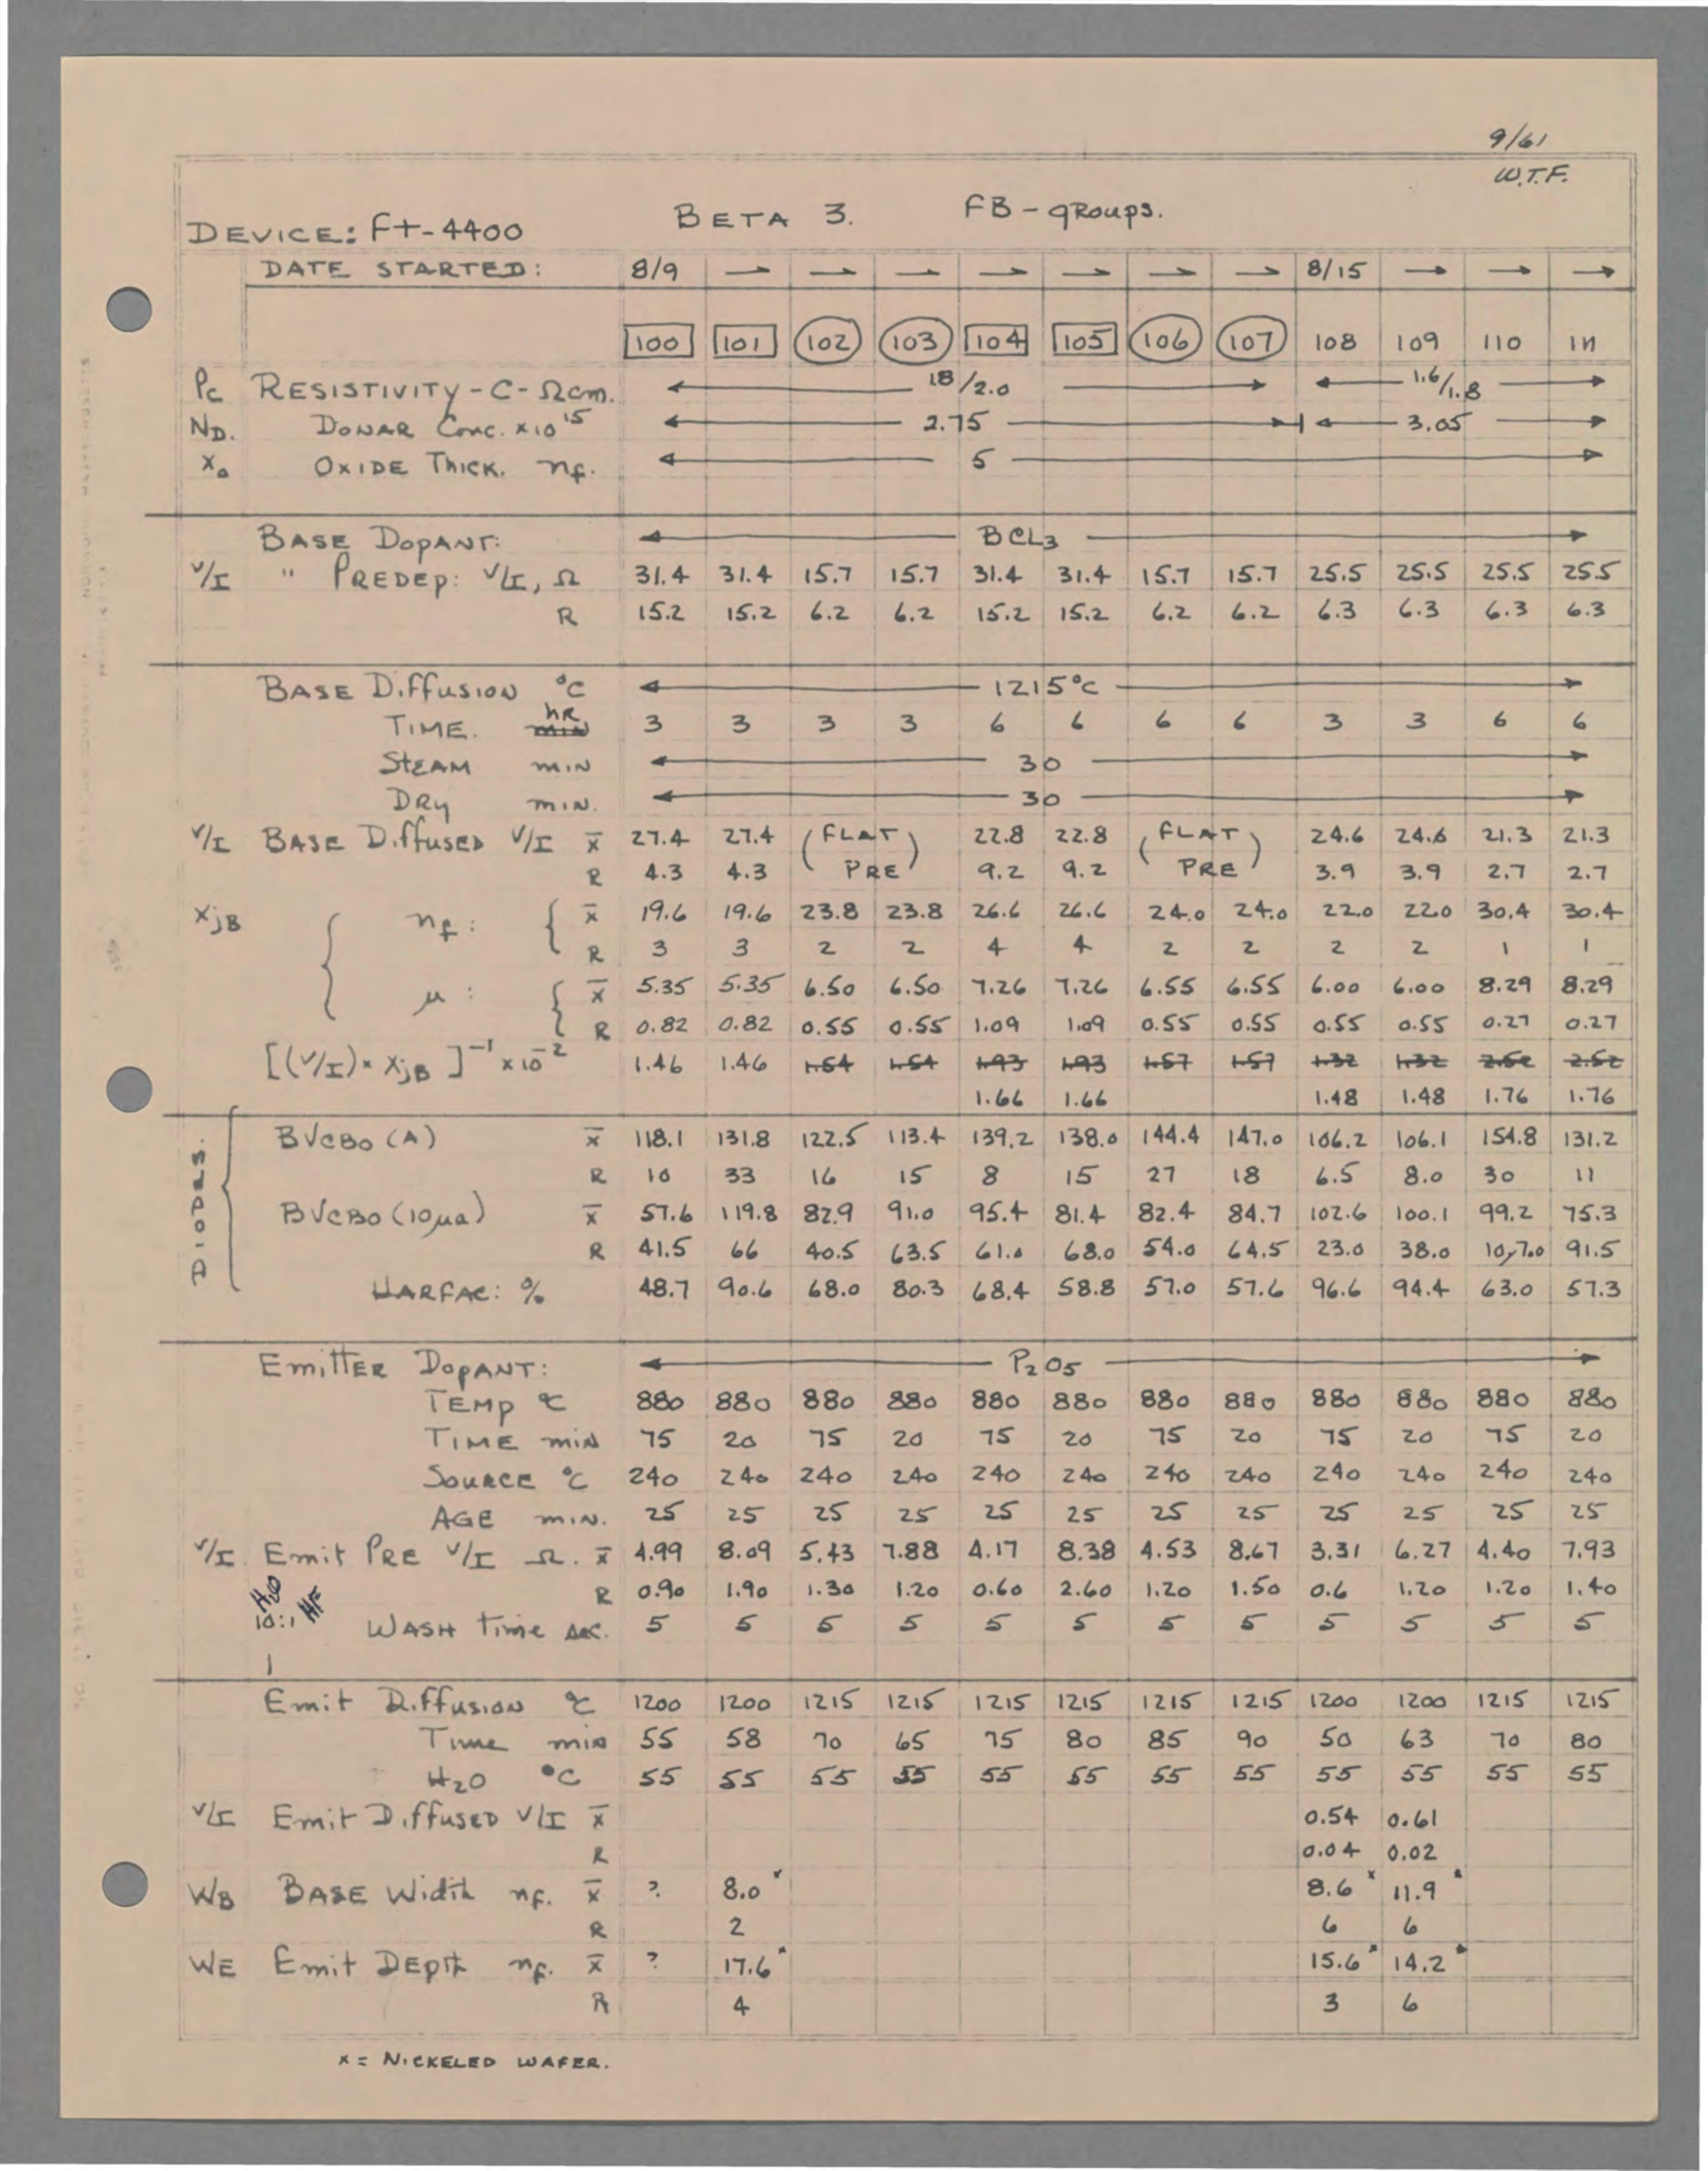 9/61
W.T.F.
DEVICE: Ft-4400 BETA 3. FB-GROUPS.
DATE STARTED: 8/9 → → → → → → → 8/15 → → →
100 101 102 103 104 105 106 107 108 109 110 111
ρc RESISTIVITY-C-Ωcm. ← 1.8/2.0 → ← 1.6/1.8 →
ND. DONAR Conc. x10¹⁵ ← 2.75 → ← 3.05 →
Xo OXIDE THICK. nf. ← 5 →
BASE DOPANT: ← BCL3 →
V/I " PREDEP: V/I, Ω 31.4 31.4 15.7 15.7 31.4 31.4 15.7 15.7 25.5 25.5 25.5 25.5
R 15.2 15.2 6.2 6.2 15.2 15.2 6.2 6.2 6.3 6.3 6.3 6.3
BASE DIFFUSION °C ← 1215°C →
TIME. hR min 3 3 3 3 6 6 6 6 3 3 6 6
STEAM MIN ← 30 →
DRY MIN. ← 30 →
V/I BASE DIFFUSED V/I x̄ 27.4 27.4 (FLAT 22.8 22.8 (FLAT 24.6 24.6 21.3 21.3
R 4.3 4.3 PRE) 9.2 9.2 PRE) 3.9 3.9 2.7 2.7
XjB nf: x̄ 19.6 19.6 23.8 23.8 26.6 26.6 24.0 24.0 22.0 22.0 30.4 30.4
R 3 3 2 2 4 4 2 2 2 2 1 1
μ: x̄ 5.35 5.35 6.50 6.50 7.26 7.26 6.55 6.55 6.00 6.00 8.29 8.29
R 0.82 0.82 0.55 0.55 1.09 1.09 0.55 0.55 0.55 0.55 0.27 0.27
[(V/I)·XjB]⁻¹ x10⁻² 1.46 1.46 1.54 1.54 1.93 1.93 1.57 1.57 1.32 1.32 2.52 2.52
1.66 1.66 1.48 1.48 1.76 1.76
DIODES.
BVCBO (A) x̄ 118.1 131.8 122.5 113.4 139.2 138.0 144.4 147.0 106.2 106.1 154.8 131.2
R 10 33 16 15 8 15 27 18 6.5 8.0 30 11
BVCBO (10μa) x̄ 57.6 119.8 82.9 91.0 95.4 81.4 82.4 84.7 102.6 100.1 99.2 75.3
R 41.5 66 40.5 63.5 61.0 68.0 54.0 64.5 23.0 38.0 107.0 91.5
HARFAC: % 48.7 90.6 68.0 80.3 68.4 58.8 57.0 57.6 96.6 94.4 63.0 57.3
EMITTER DOPANT: ← P2O5 →
TEMP °C 880 880 880 880 880 880 880 880 880 880 880 880
TIME MIN 75 20 75 20 75 20 75 20 75 20 75 20
SOURCE °C 240 240 240 240 240 240 240 240 240 240 240 240
AGE MIN. 25 25 25 25 25 25 25 25 25 25 25 25
V/I Emit PRE V/I Ω. x̄ 4.99 8.09 5.43 7.88 4.17 8.38 4.53 8.67 3.31 6.27 4.40 7.93
R 0.90 1.90 1.30 1.20 0.60 2.60 1.20 1.50 0.6 1.20 1.20 1.40
H2O HF
10:1 WASH Time sec. 5 5 5 5 5 5 5 5 5 5 5 5
Emit Diffusion °C 1200 1200 1215 1215 1215 1215 1215 1215 1200 1200 1215 1215
Time min 55 58 70 65 75 80 85 90 50 63 70 80
H2O °C 55 55 55 55 55 55 55 55 55 55 55 55
V/I Emit Diffused V/I x̄ 0.54 0.61
R 0.04 0.02
WB BASE Width nf. x̄ ? 8.0ˣ 8.6ˣ 11.9ˣ
R 2 6 6
WE Emit DEpth nf. x̄ ? 17.6ˣ 15.6ˣ 14.2ˣ
R 4 3 6
x = NICKELED WAFER.